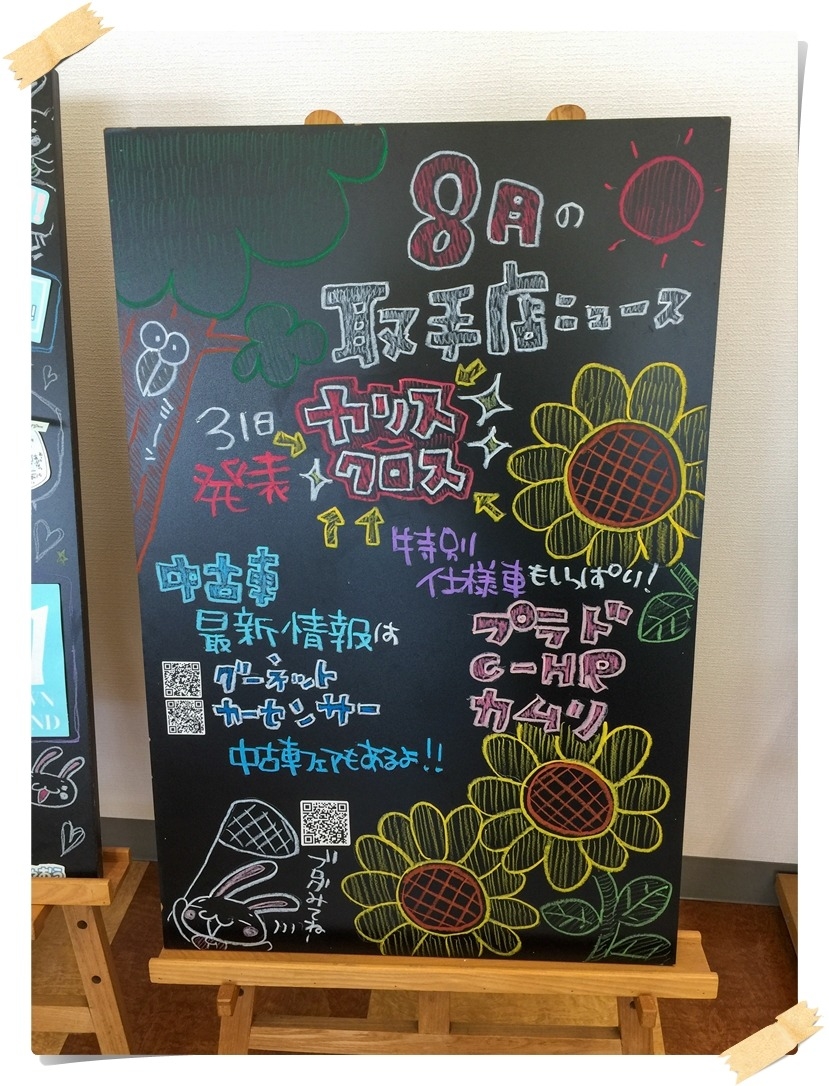 8月の
取手店ニュース
31日
発表
ヤリス
クロス
特別
仕様車もいっぱい!
プラド
C-HR
カムリ
中古車
最新情報は
グーネット
カーセンサー
中古車フェアもあるよ!!
ブログみてねー
ミーン